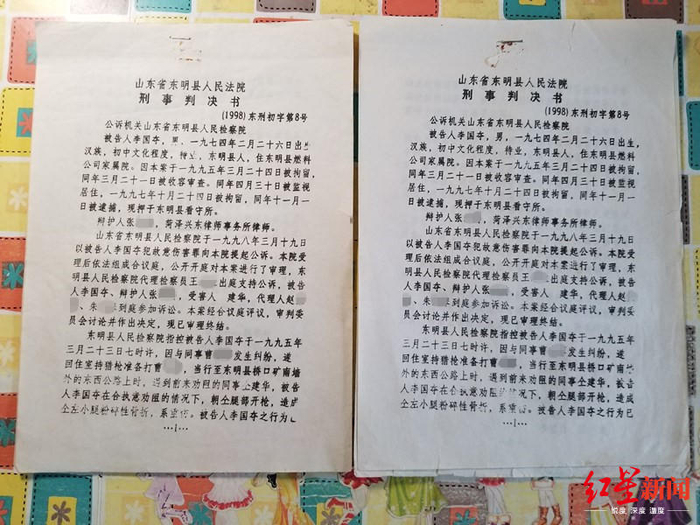 山东省东明县人民法院
刑事判决书
(1998)东刑初字第8号
公诉机关山东省东明县人民检察院
被告人李国夺，男，一九七四年二月二十六日出生
汉族，初中文化程度，待业，东明县人，住东明县燃料
公司家属院。因本案于一九九五年三月二十四日被拘留，
同年三月二十一日被收容审查。同年四月三十日被监视
居住，一九九七年十月二十四日被拘留，同年十一月一
日被逮捕，现押于东明县看守所。
辩护人张 ，菏泽兴东律师事务所律师。
山东省东明县人民检察院于一九九八年三月十九日
以被告人李国夺犯故意伤害罪向本院提起公诉。本院受
理后依法组成合议庭，公开开庭对本案进行了审理，东
明县人民检察院代理检察员王 出庭支持公诉，被告
人李国夺、辩护人张 ，受害人 建华，代理人赵
、朱 到庭参加诉讼。本案经合议庭评议，审判委
员会讨论并作出决定，现已审理终结。
东明县人民检察院指控被告人李国夺于一九九五年
三月二十三日七时许，因与同事曹 发生纠纷，遂
回住室持猎枪准备打曹 ，当行至东明县桥口矿南墙
外的东西公路上时，遇到前来劝阻的同事仝建华，被告
人李国夺在合执意劝阻的情况下，朝仝腿部开枪，造成
仝左小腿粉碎性骨折，系重伤。被告人李国夺之行为已
山东省东明县人民法院
刑事判决书
(1998)东刑初字第8号
公诉机关山东省东明县人民检察院
被告人李国夺，男，一九七四年二月二十六日出生，
汉族，初中文化程度，待业，东明县人，住东明县燃料
公司家属院。因本案于一九九五年三月二十四日被拘留，
同年三月二十一日被收容审查。同年四月三十日被监视
居住，一九九七年十月二十四日被拘留，同年十一月一
日被逮捕，现押于东明县看守所。
辩护人张 ，菏泽兴东律师事务所律师。
山东省东明县人民检察院于一九九八年三月十九日
以被告人李国夺犯故意伤害罪向本院提起公诉。本院受
理后依法组成合议庭，公开开庭对本案进行了审理，东
明县人民检察院代理检察员王 出庭支持公诉，被告
人李国夺、辩护人张 ，受害人 建华，代理人赵
、朱 到庭参加诉讼。本案经合议庭评议，审判委
员会讨论并作出决定，现已审理终结。
东明县人民检察院指控被告人李国夺于一九九五年
三月二十三日七时许，因与同事曹 发生纠纷，遂
回住室持猎枪准备打曹 ，当行至东明县桥口矿南墙
外的东西公路上时，遇到前来劝阻的同事仝建华，被告
人李国夺在合执意劝阻的情况下，朝仝腿部开枪，造成
仝左小腿粉碎性骨折，系重伤。被告人李国夺之行为已
红星新闻
锐度 深度 温度